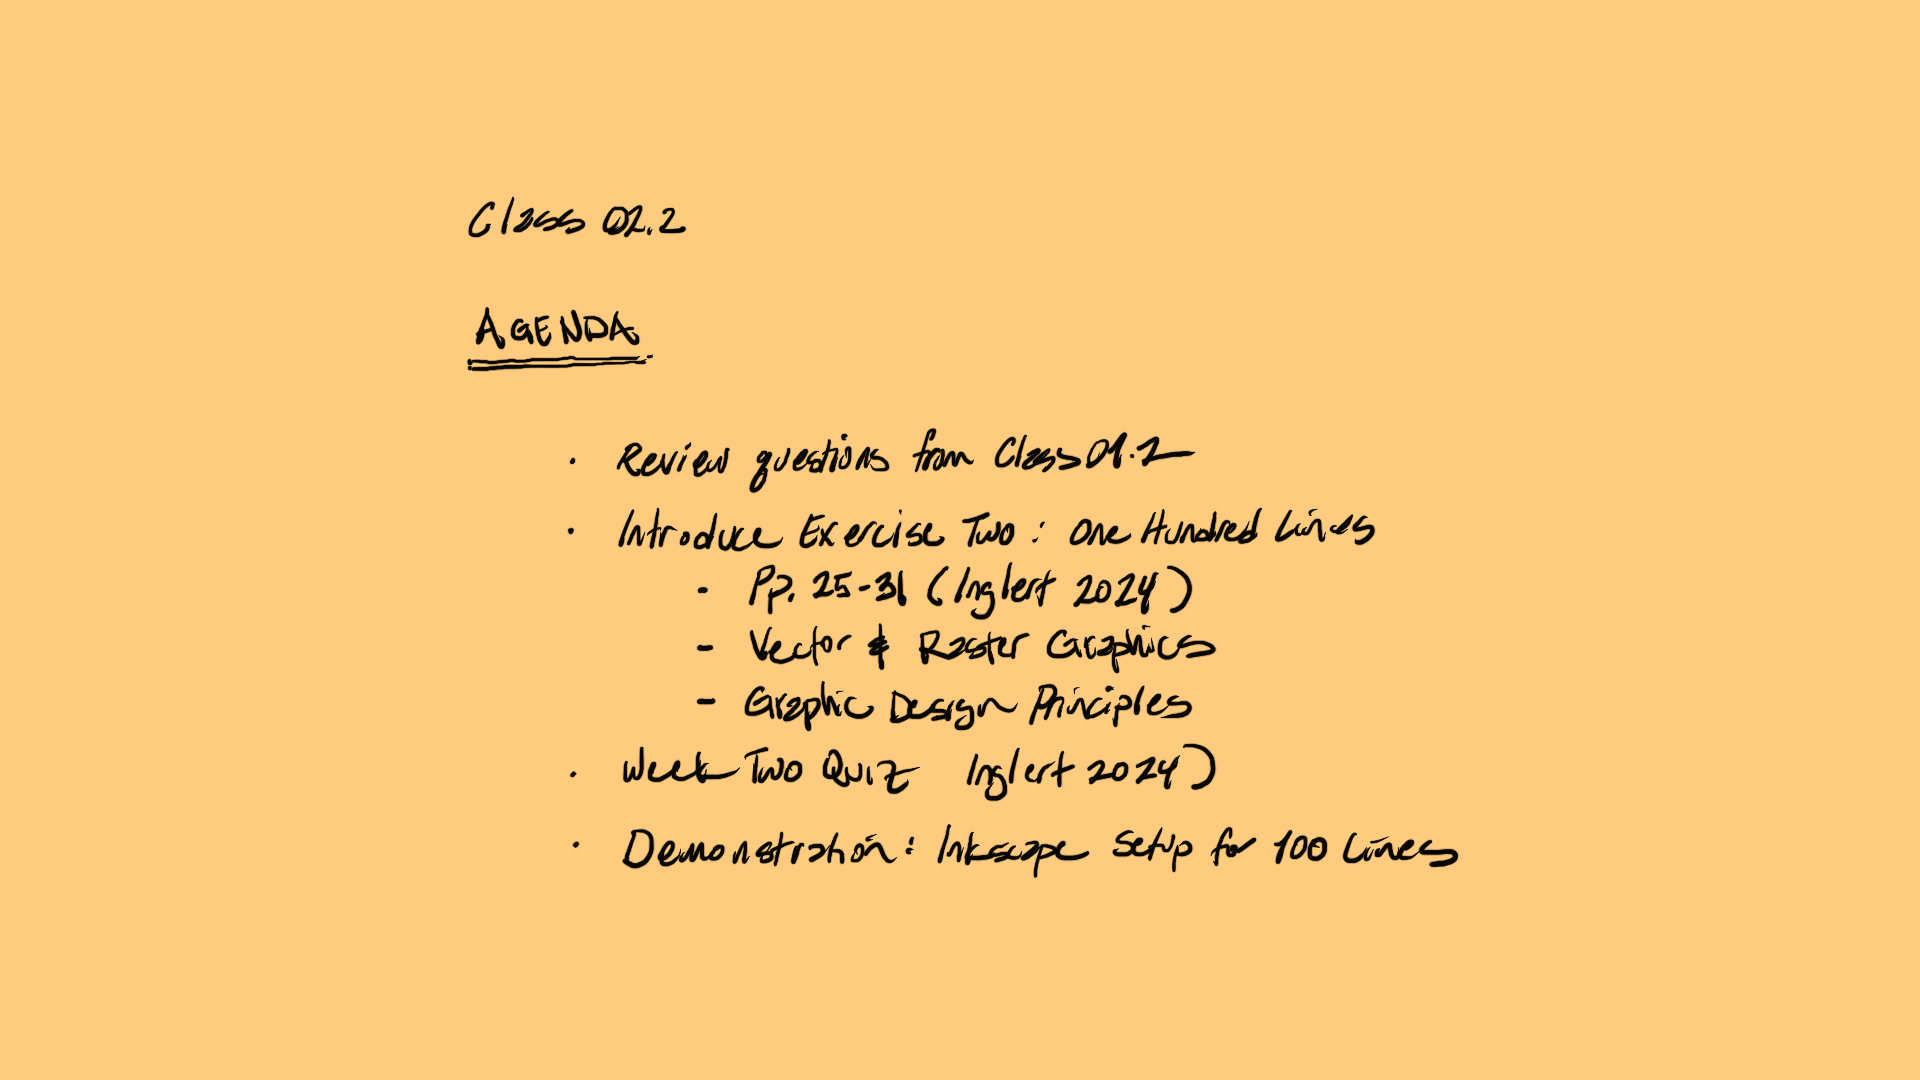 Class 02.2
AGENDA
· Review questions from Class 01.2
· Introduce Exercise Two: One Hundred Lines
- Pp. 25-31 (Inglert 2024)
- Vector & Raster Graphics
- Graphic Design Principles
· Week Two Quiz Inglert 2024)
· Demonstration: Inkscape Setup for 100 Lines